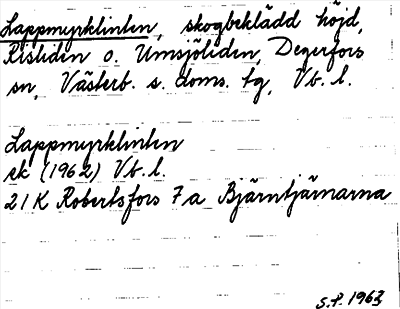 Lappmyrklinten, skogbeklädd höjd,
Risliden o. Umsjöliden, Degerfors
sn, Västerb. s. doms. tg, Vb. l.
Lappmyrklinten
ek (1962) Vb. l.
21K Robertsfors 7a Bjärntjärnarna
S.P. 1963